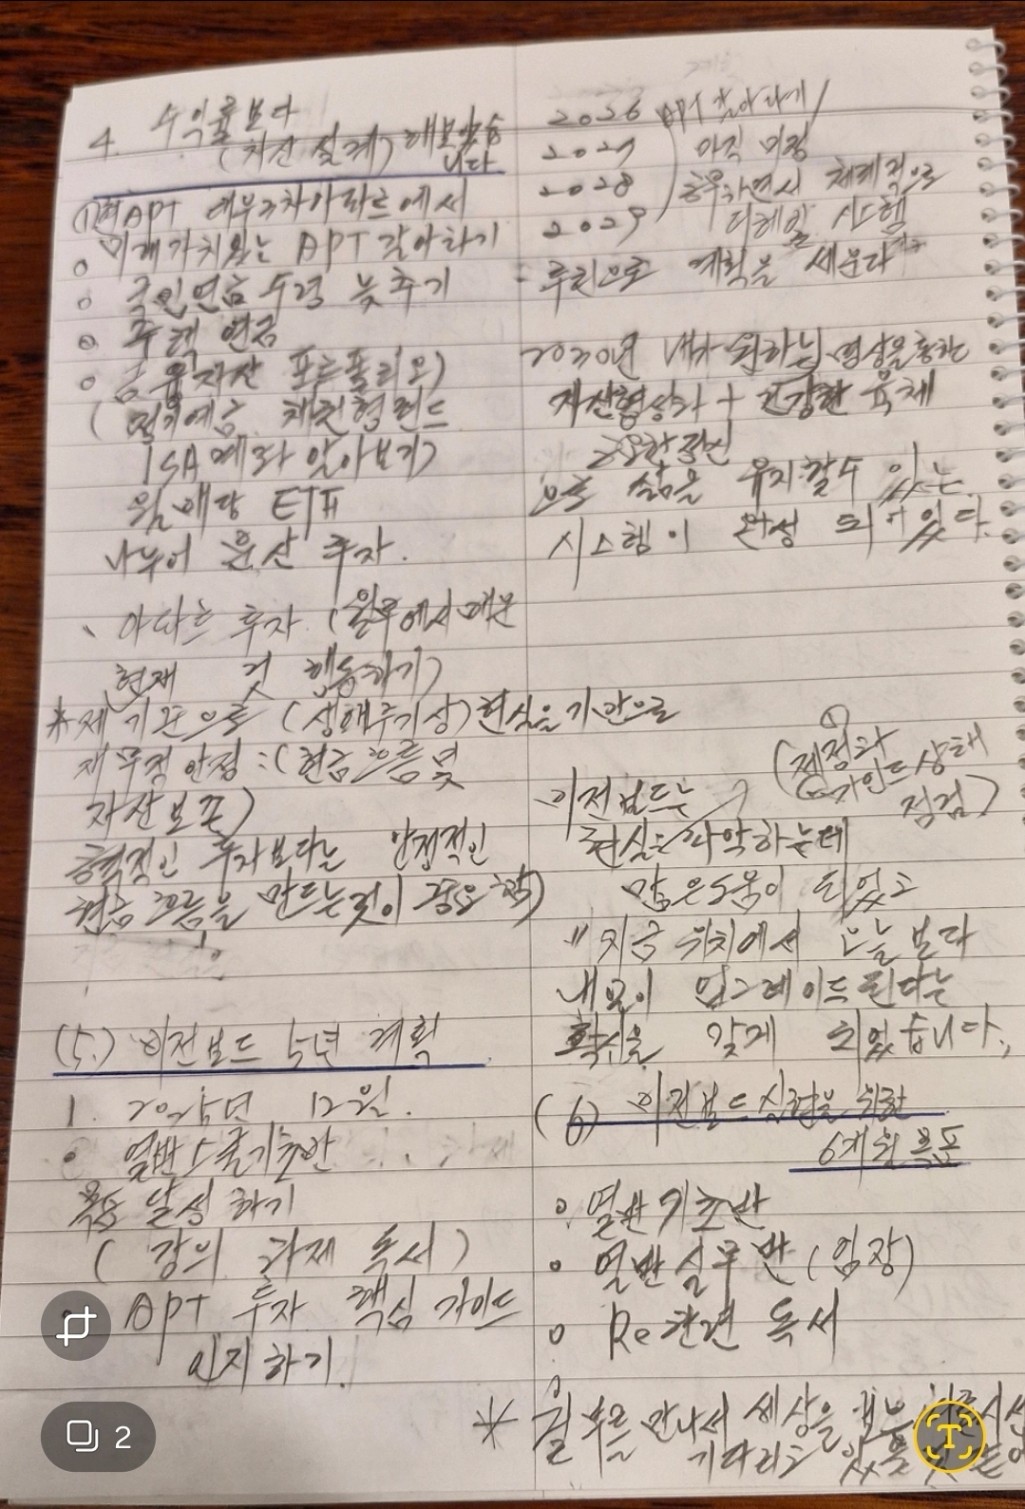 4. 수익률보다
(자산 설계) 해보았습
니다
(1) 현 APT 대부3차아파트에서
미래가치있는 APT 갈아타기
o 국민연금 수령 늦추기
o 주택 연금
o 금융자산 포트폴리오)
(정기예금 채권형펀드
ISA계좌 알아보기)
월배당 ETF
나누어 분산 투자.
아파트 투자 (월부에서 배운
현재 것 행동하기)
* 제 기준으로 (생애주기상) 현실을 기반으로
재무적 안정 : (현금흐름 및
자산보존)
공격적인 투자보다는 안정적인
현금 흐름을 만드는것이 중요함)
(5.) 비전보드 5년 계획
1. 2025년 12월.
• 열반스쿨기초반
목표 달성하기
(강의 과제 독서)
APT 투자 핵심 가이드
인지하기.
2026 APT 갈아타기
2027 아직 미정
2028 공부하면서 체계적으로
2029 디테일 시스템
루틴으로 계획을 세운다
2030년 내가 원하는 영상을 통한
자산형성화 + 건강한 육체
건강한 정신
으로 삶을 유지할수 있는
시스템이 완성 되어있다.
비전보드는
(재정과
마인드 상태
점검)
현실을 파악하는데
많은 도움이 되었고
"지금 위치에서 오늘보다
내몸이 업그레이드 된다는
확신을 갖게 되었습니다.,
(6) 비전보드 실현을 위한
6개월 목표
o 열반기초반
o 열반실무반 (임장)
o Re 관련 독서
* 월부를 만나서 세상을
기다리고 있는